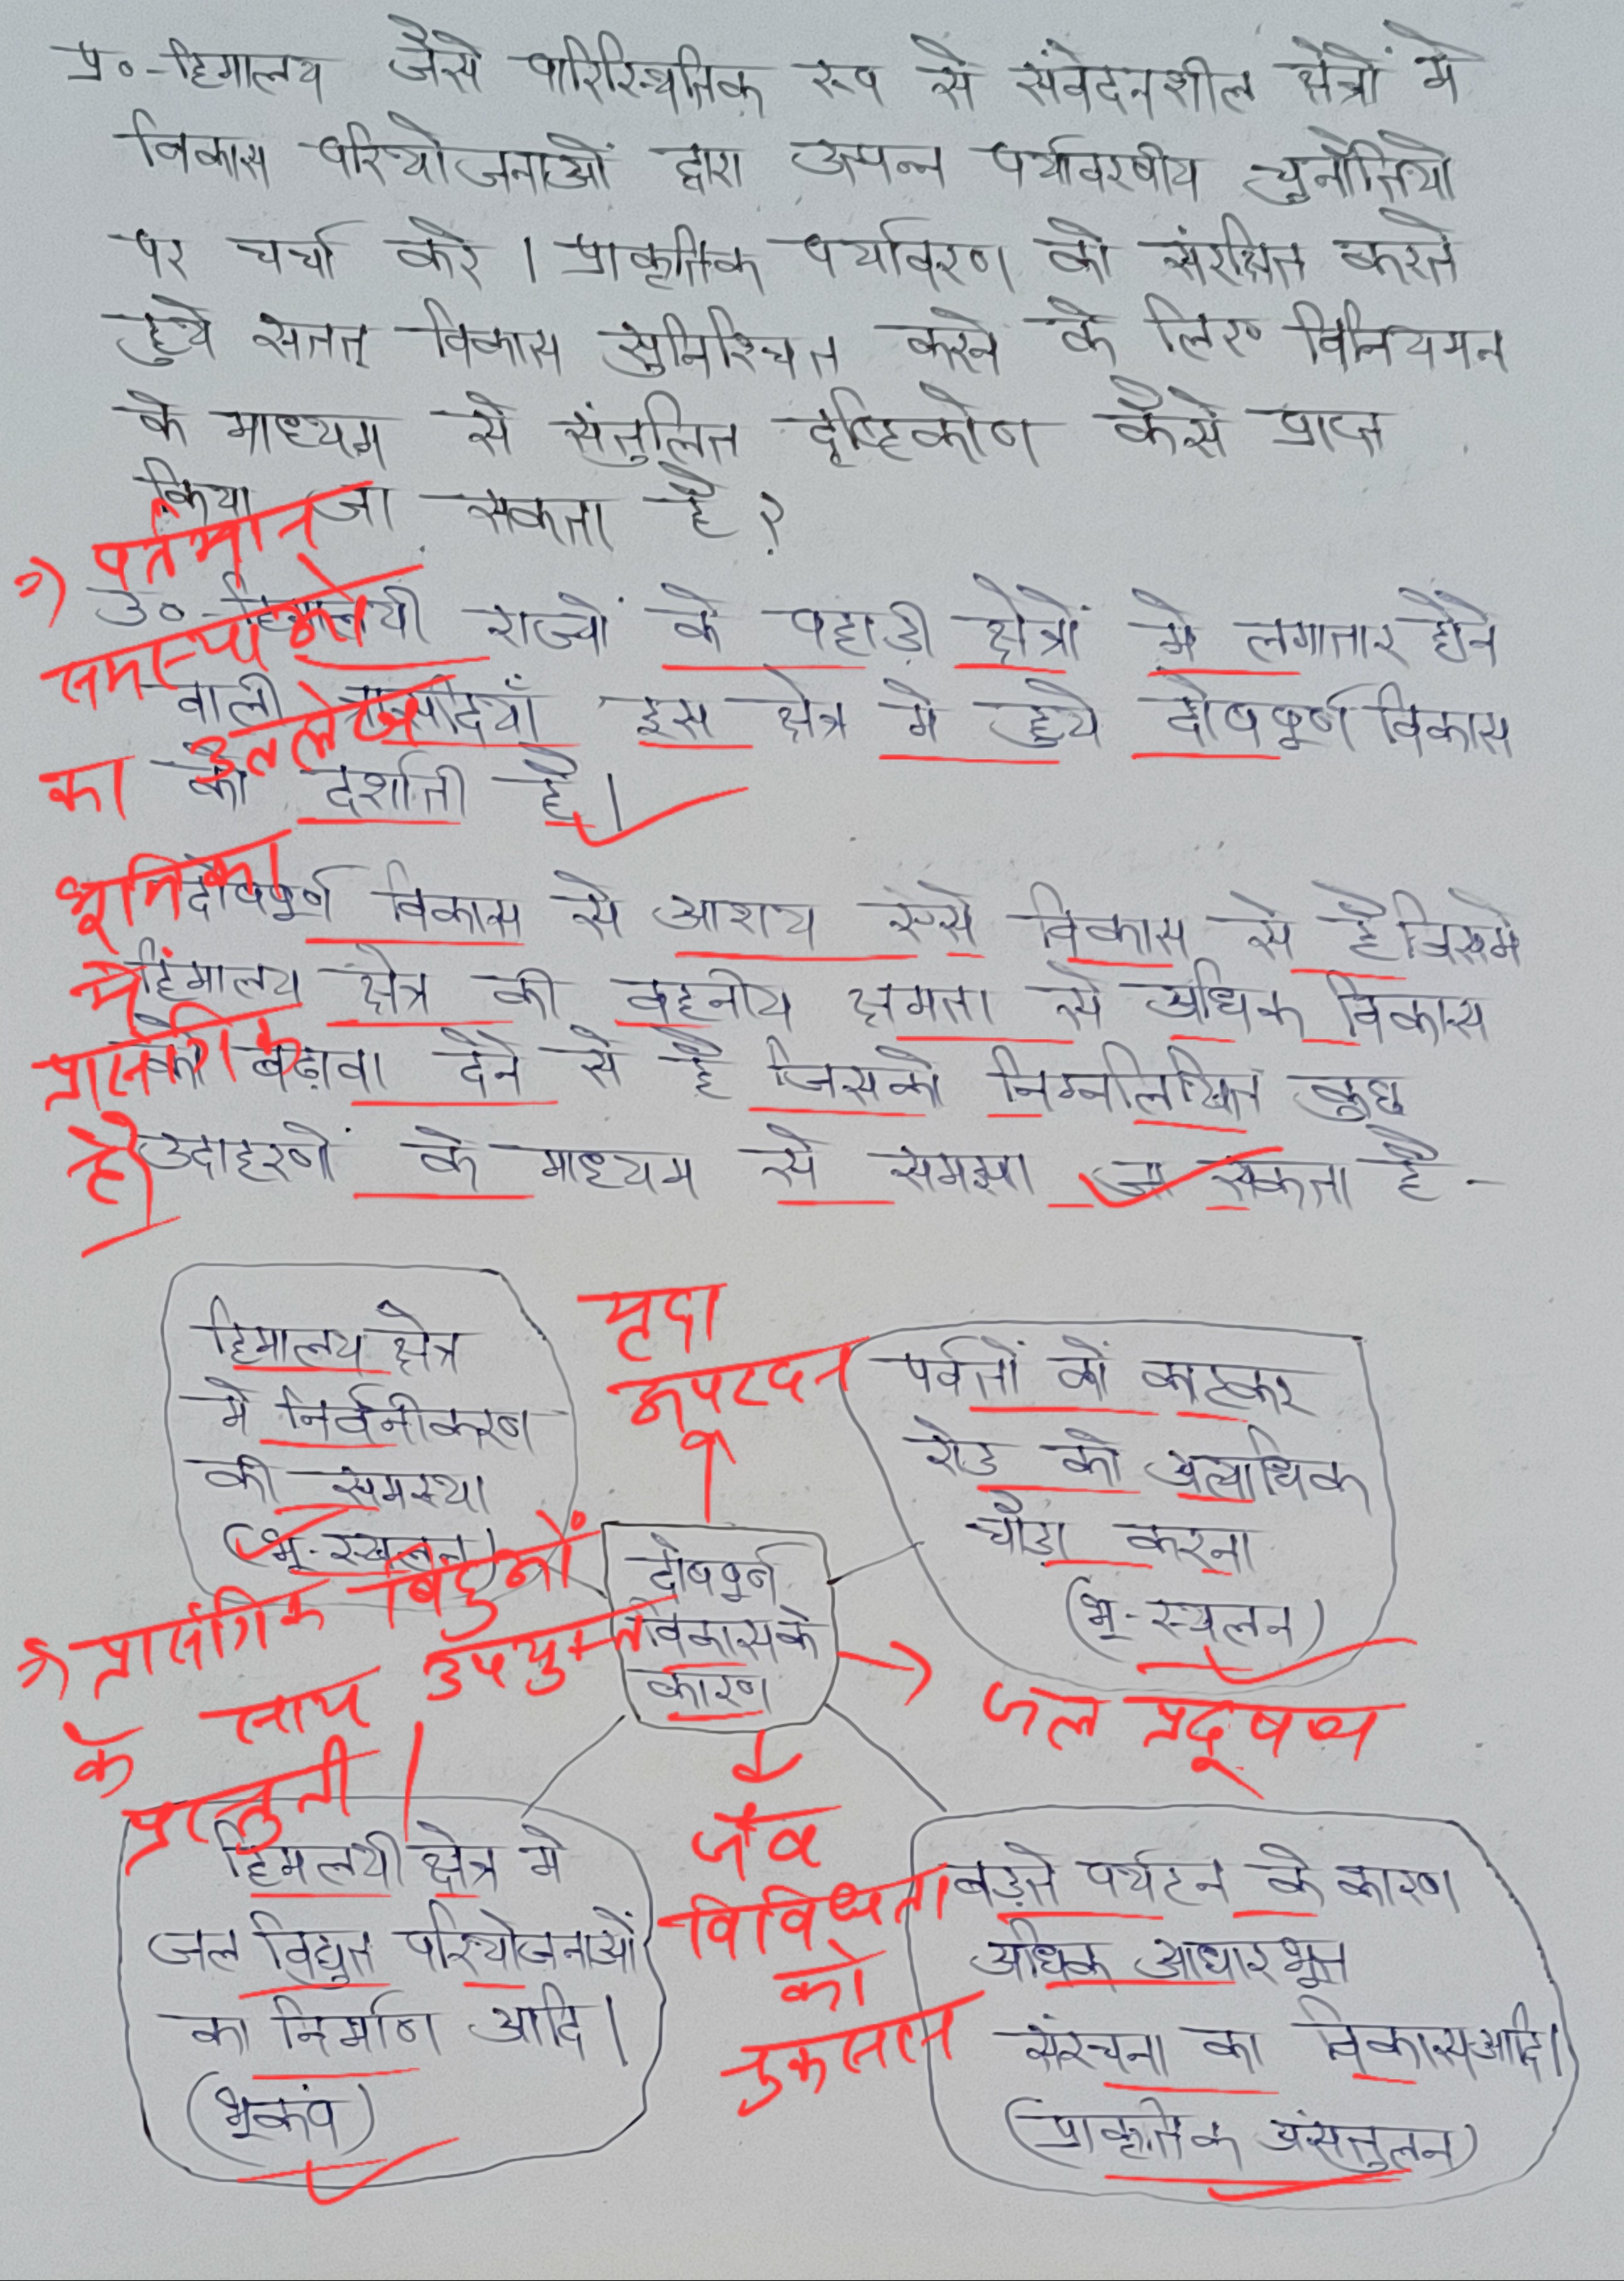 प्र०-हिमालय जैसे पारिस्थितिक रूप से संवेदनशील क्षेत्रों मे
विकास परियोजनाओं द्वारा उत्पन्न पर्यावरणीय चुनौतियों
पर चर्चा करे। प्राकृतिक पर्यावरण को संरक्षित करते
हुये सतत् विकास सुनिश्चित करने के लिए विनियमन
के माध्यम से संतुलित दृष्टिकोण कैसे प्राप्त
किया जा सकता है?
वर्तमान
उ०-हिमालयी राज्यों के पहाड़ी क्षेत्रों मे लगातार होने
समस्या को
वाली त्रासदियाँ इस क्षेत्र मे हुये दोषपूर्ण विकास
उल्लेख
का को दर्शाती है।
भूमिका
दोषपूर्ण विकास से आशय ऐसे विकास से है जिसमे
में हिमालय क्षेत्र की वहनीय क्षमता से अधिक विकास
प्रासंगिक को बढ़ावा देने से है जिसको निम्नलिखित कुछ
है। उदाहरणों के माध्यम से समझा जा सकता है -
हिमालय क्षेत्र
मे निर्वनीकरण
की समस्या
(भू-स्खलन)
मृदा
अपरदन
पर्वतों को काटकर
रोड को अत्याधिक
चौड़ा करना
(भू-स्खलन)
दोषपूर्ण
विकास के
कारण
प्रासंगिक बिंदुओं
के साथ उपयुक्त
प्रस्तुती।
जल प्रदूषण
हिमलयी क्षेत्र मे
जल विद्युत परियोजनाओं
का निर्माण आदि।
(भूकंप)
जैव
विविधता
को
नुकसान
बढ़ते पर्यटन के कारण
अधिक आधारभूत
संरचना का विकास आदि।
(प्राकृतिक असंतुलन)